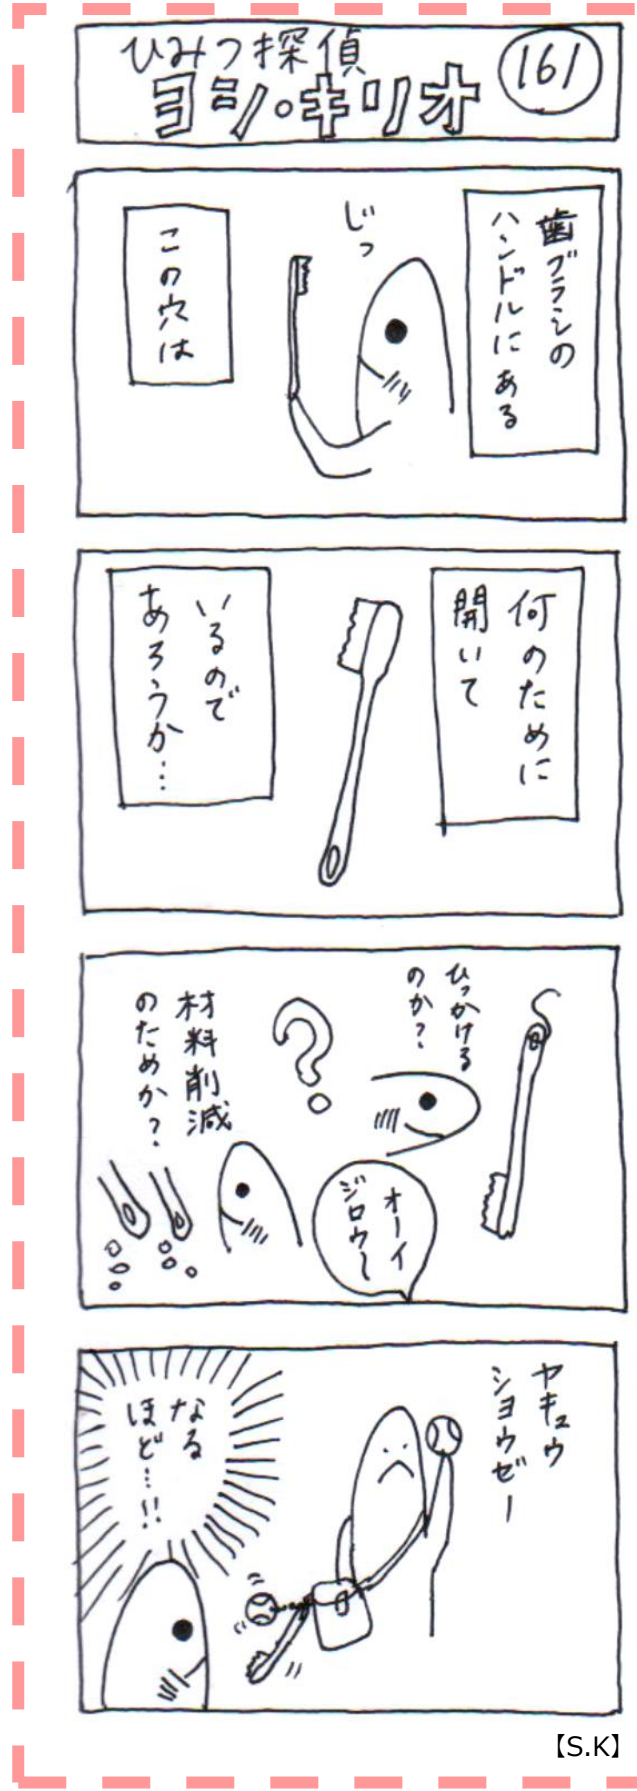 ひみつ探偵
ヨシ・キリオ
161
歯ブラシの
ハンドルにある
じっ
この穴は
何のために
開いて
いるので
あろうか…
ひっかける
のか？
材料削減
のためか？
オーイ
ジロウ～
ヤキュウ
ショウゼー
なる
ほど…!!
【S.K】